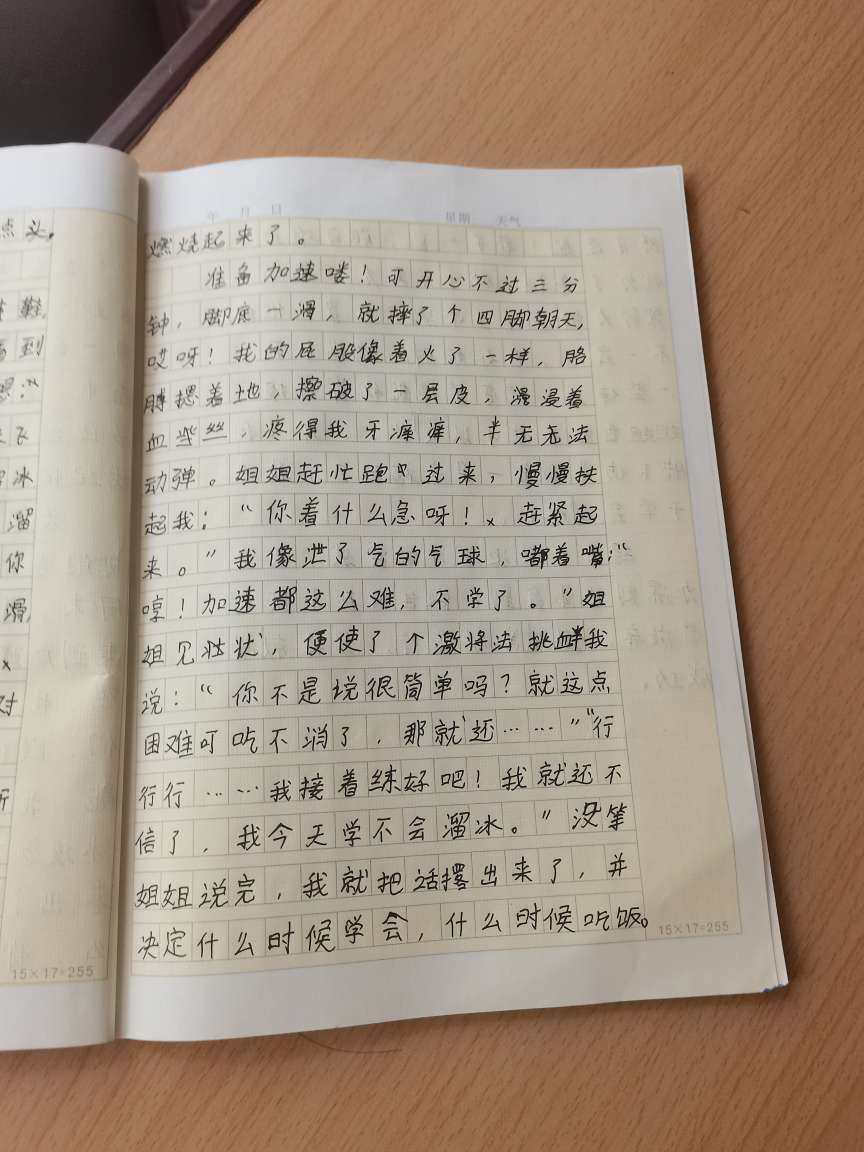 年 月 日 星期 天气
燃烧起来了。
准备加速喽！可开心不过三分
钟，脚底一滑，就摔了个四脚朝天，
哎呀！我的屁股像着火了一样，胳
膊摁着地，擦破了一层皮，漫浸着
血些丝，疼得我牙痒痒，半无无法
动弹。姐姐赶忙跑过来，慢慢扶
起我：“你着什么急呀！、赶紧起
来。”我像泄了气的气球，嘟着嘴：“
哼！加速都这么难，不学了。”姐
姐见壮状，便使了个激将法挑衅我
说：“你不是说很简单吗？就这点
困难叮吃不消了，那就还……”“行
行行……我接着练好吧！我就还不
信了，我今天学不会溜冰。”没等
姐姐说完，我就把话撂出来了，并
决定什么时候学会，什么时候吃饭。
15×17=255
点头，
鞋
到
飞
冰
溜
你
滑，
对
15×17=255